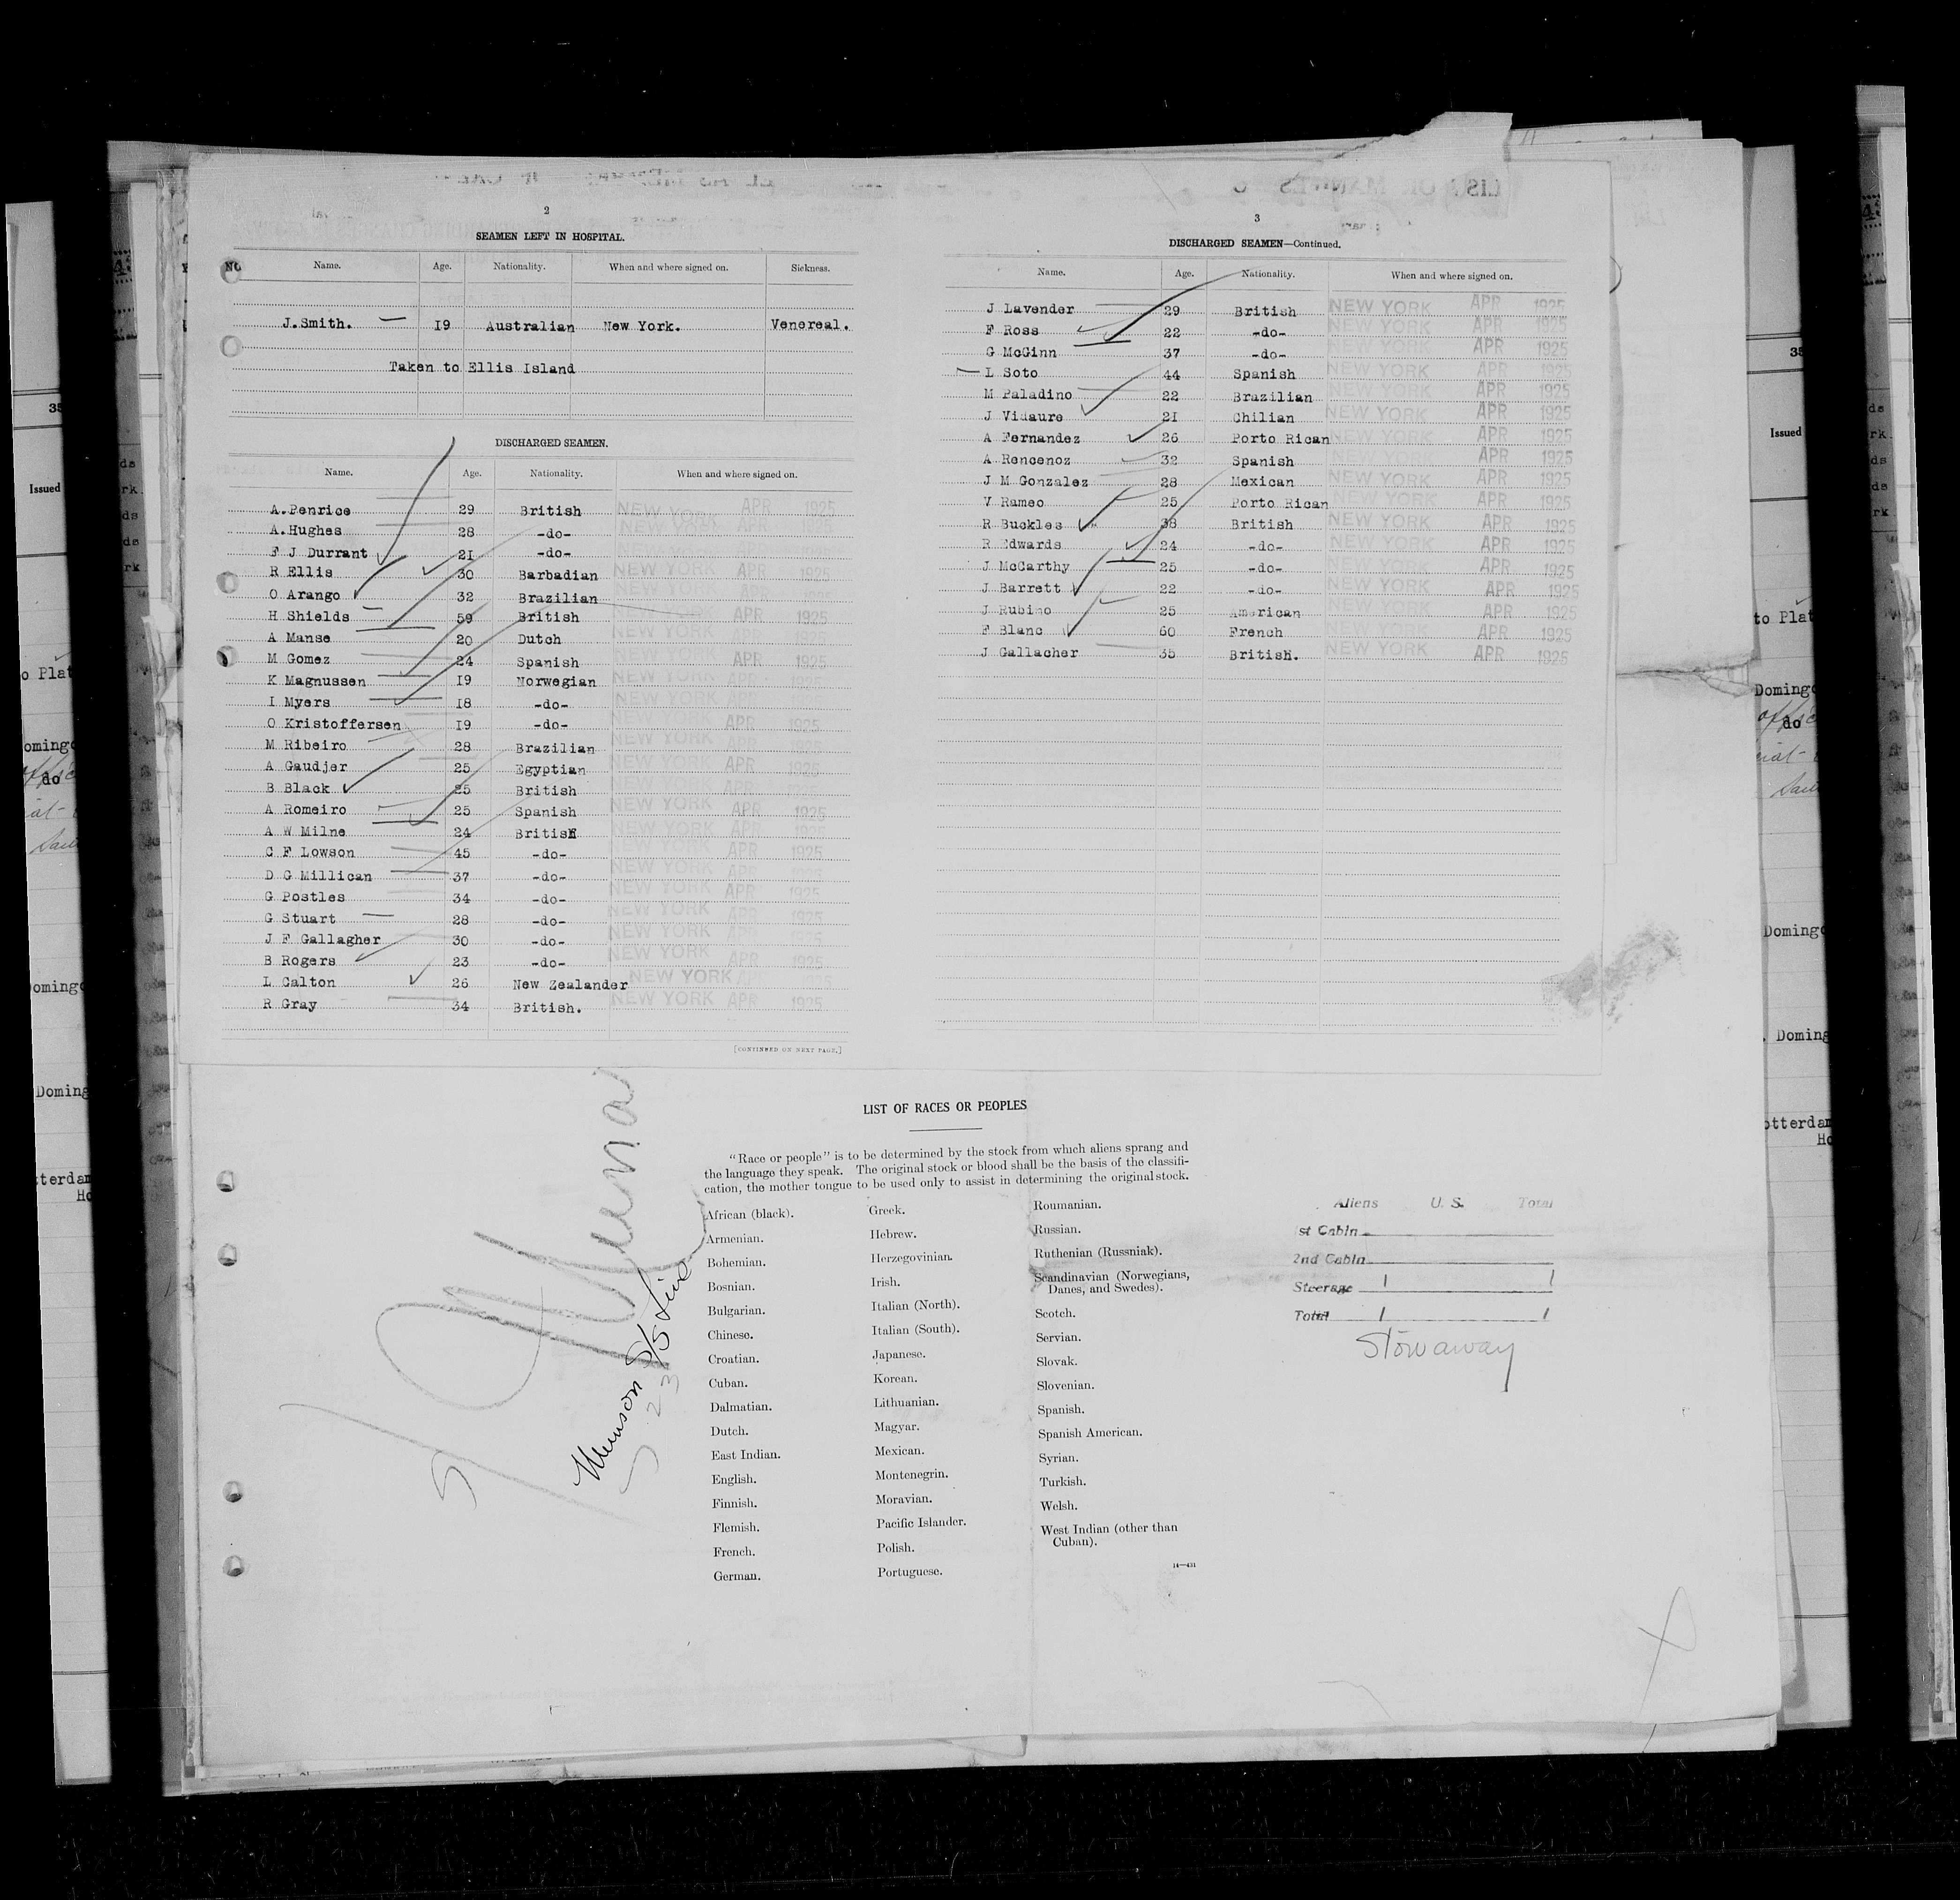 2
SEAMEN LEFT IN HOSPITAL.
NO Name. Age. Nationality. When and where signed on. Sickness.
J.Smith. — 19 Australian New York. Venereal.
Taken to Ellis Island
DISCHARGED SEAMEN.
Name. Age. Nationality. When and where signed on.
A.Penrice 29 British NEW YORK APR 1925
A.Hughes 28 -do- NEW YORK
F J Durrant 21 -do-
R Ellis 30 Barbadian NEW YORK APR 1925
O Arango 32 Brazilian NEW YORK
H Shields 59 British NEW YORK APR 1925
A Manse 20 Dutch NEW YORK APR
M Gomez 24 Spanish NEW YORK APR 1925
K Magnussen 19 Norwegian NEW YORK
I Myers 18 -do- NEW YORK APR 1925
O Kristoffersen 19 -do- NEW YORK APR 1925
M Ribeiro 28 Brazilian NEW YORK APR 1925
A Gaudjer 25 Egyptian NEW YORK APR 1925
B Black 25 British NEW YORK APR 1925
A Romeiro 25 Spanish NEW YORK APR 1925
A W Milne 24 British NEW YORK APR 1925
C F Lowson 45 -do- NEW YORK APR 1925
D G Millican 37 -do- NEW YORK APR 1925
G Postles 34 -do- NEW YORK APR 1925
G Stuart 28 -do- NEW YORK 1925
J F Gallagher 30 -do- NEW YORK
B Rogers 23 -do- NEW YORK APR 1925
L Calton 26 New Zealander NEW YORK APR 1925
R Gray 34 British. NEW YORK APR 1925
[CONTINUED ON NEXT PAGE.]
3
DISCHARGED SEAMEN—Continued.
Name. Age. Nationality. When and where signed on.
J Lavender 29 British NEW YORK APR 1925
F Ross 22 -do- NEW YORK APR 1925
G McGinn 37 -do- NEW YORK APR 1925
L Soto 44 Spanish NEW YORK APR 1925
M Paladino 22 Brazilian NEW YORK APR 1925
J Vidaure 21 Chilian NEW YORK APR 1925
A Fernandez 26 Porto Rican NEW YORK APR 1925
A Rencenoz 32 Spanish NEW YORK APR 1925
J M Gonzalez 28 Mexican NEW YORK APR 1925
V Rameo 25 Porto Rican NEW YORK APR 1925
R Buckles 38 British NEW YORK APR 1925
R Edwards 24 -do- NEW YORK APR 1925
J McCarthy 25 -do- NEW YORK APR 1925
J Barrett 22 -do- NEW YORK APR 1925
J Rubino 25 American NEW YORK APR 1925
F Blanc 60 French NEW YORK APR 1925
J Gallacher 35 British. NEW YORK APR 1925
LIST OF RACES OR PEOPLES
"Race or people" is to be determined by the stock from which aliens sprang and
the language they speak. The original stock or blood shall be the basis of the classifi-
cation, the mother tongue to be used only to assist in determining the original stock.
African (black).
Armenian.
Bohemian.
Bosnian.
Bulgarian.
Chinese.
Croatian.
Cuban.
Dalmatian.
Dutch.
East Indian.
English.
Finnish.
Flemish.
French.
German.
Greek.
Hebrew.
Herzegovinian.
Irish.
Italian (North).
Italian (South).
Japanese.
Korean.
Lithuanian.
Magyar.
Mexican.
Montenegrin.
Moravian.
Pacific Islander.
Polish.
Portuguese.
Roumanian.
Russian.
Ruthenian (Russniak).
Scandinavian (Norwegians,
Danes, and Swedes).
Scotch.
Servian.
Slovak.
Slovenian.
Spanish.
Spanish American.
Syrian.
Turkish.
Welsh.
West Indian (other than
Cuban).
14—431
Munson S/S Line
23
Aliens U. S. Total
1st Cabin
2nd Cabin
Steerage 1 1
Total 1 1
Stowaway
Issued
do
Issued
do